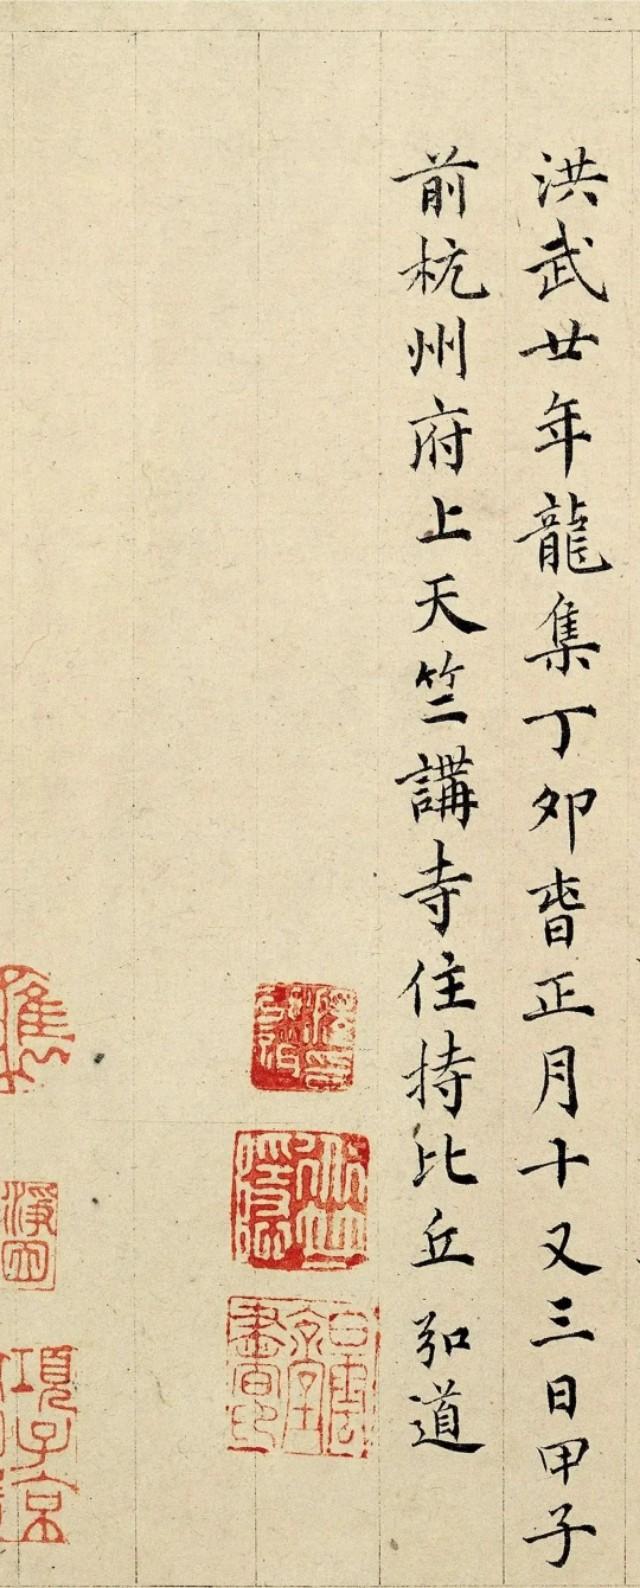 洪武廿年龍集丁卯春正月十又三日甲子
前杭州府上天竺講寺住持比丘弘道
項子京